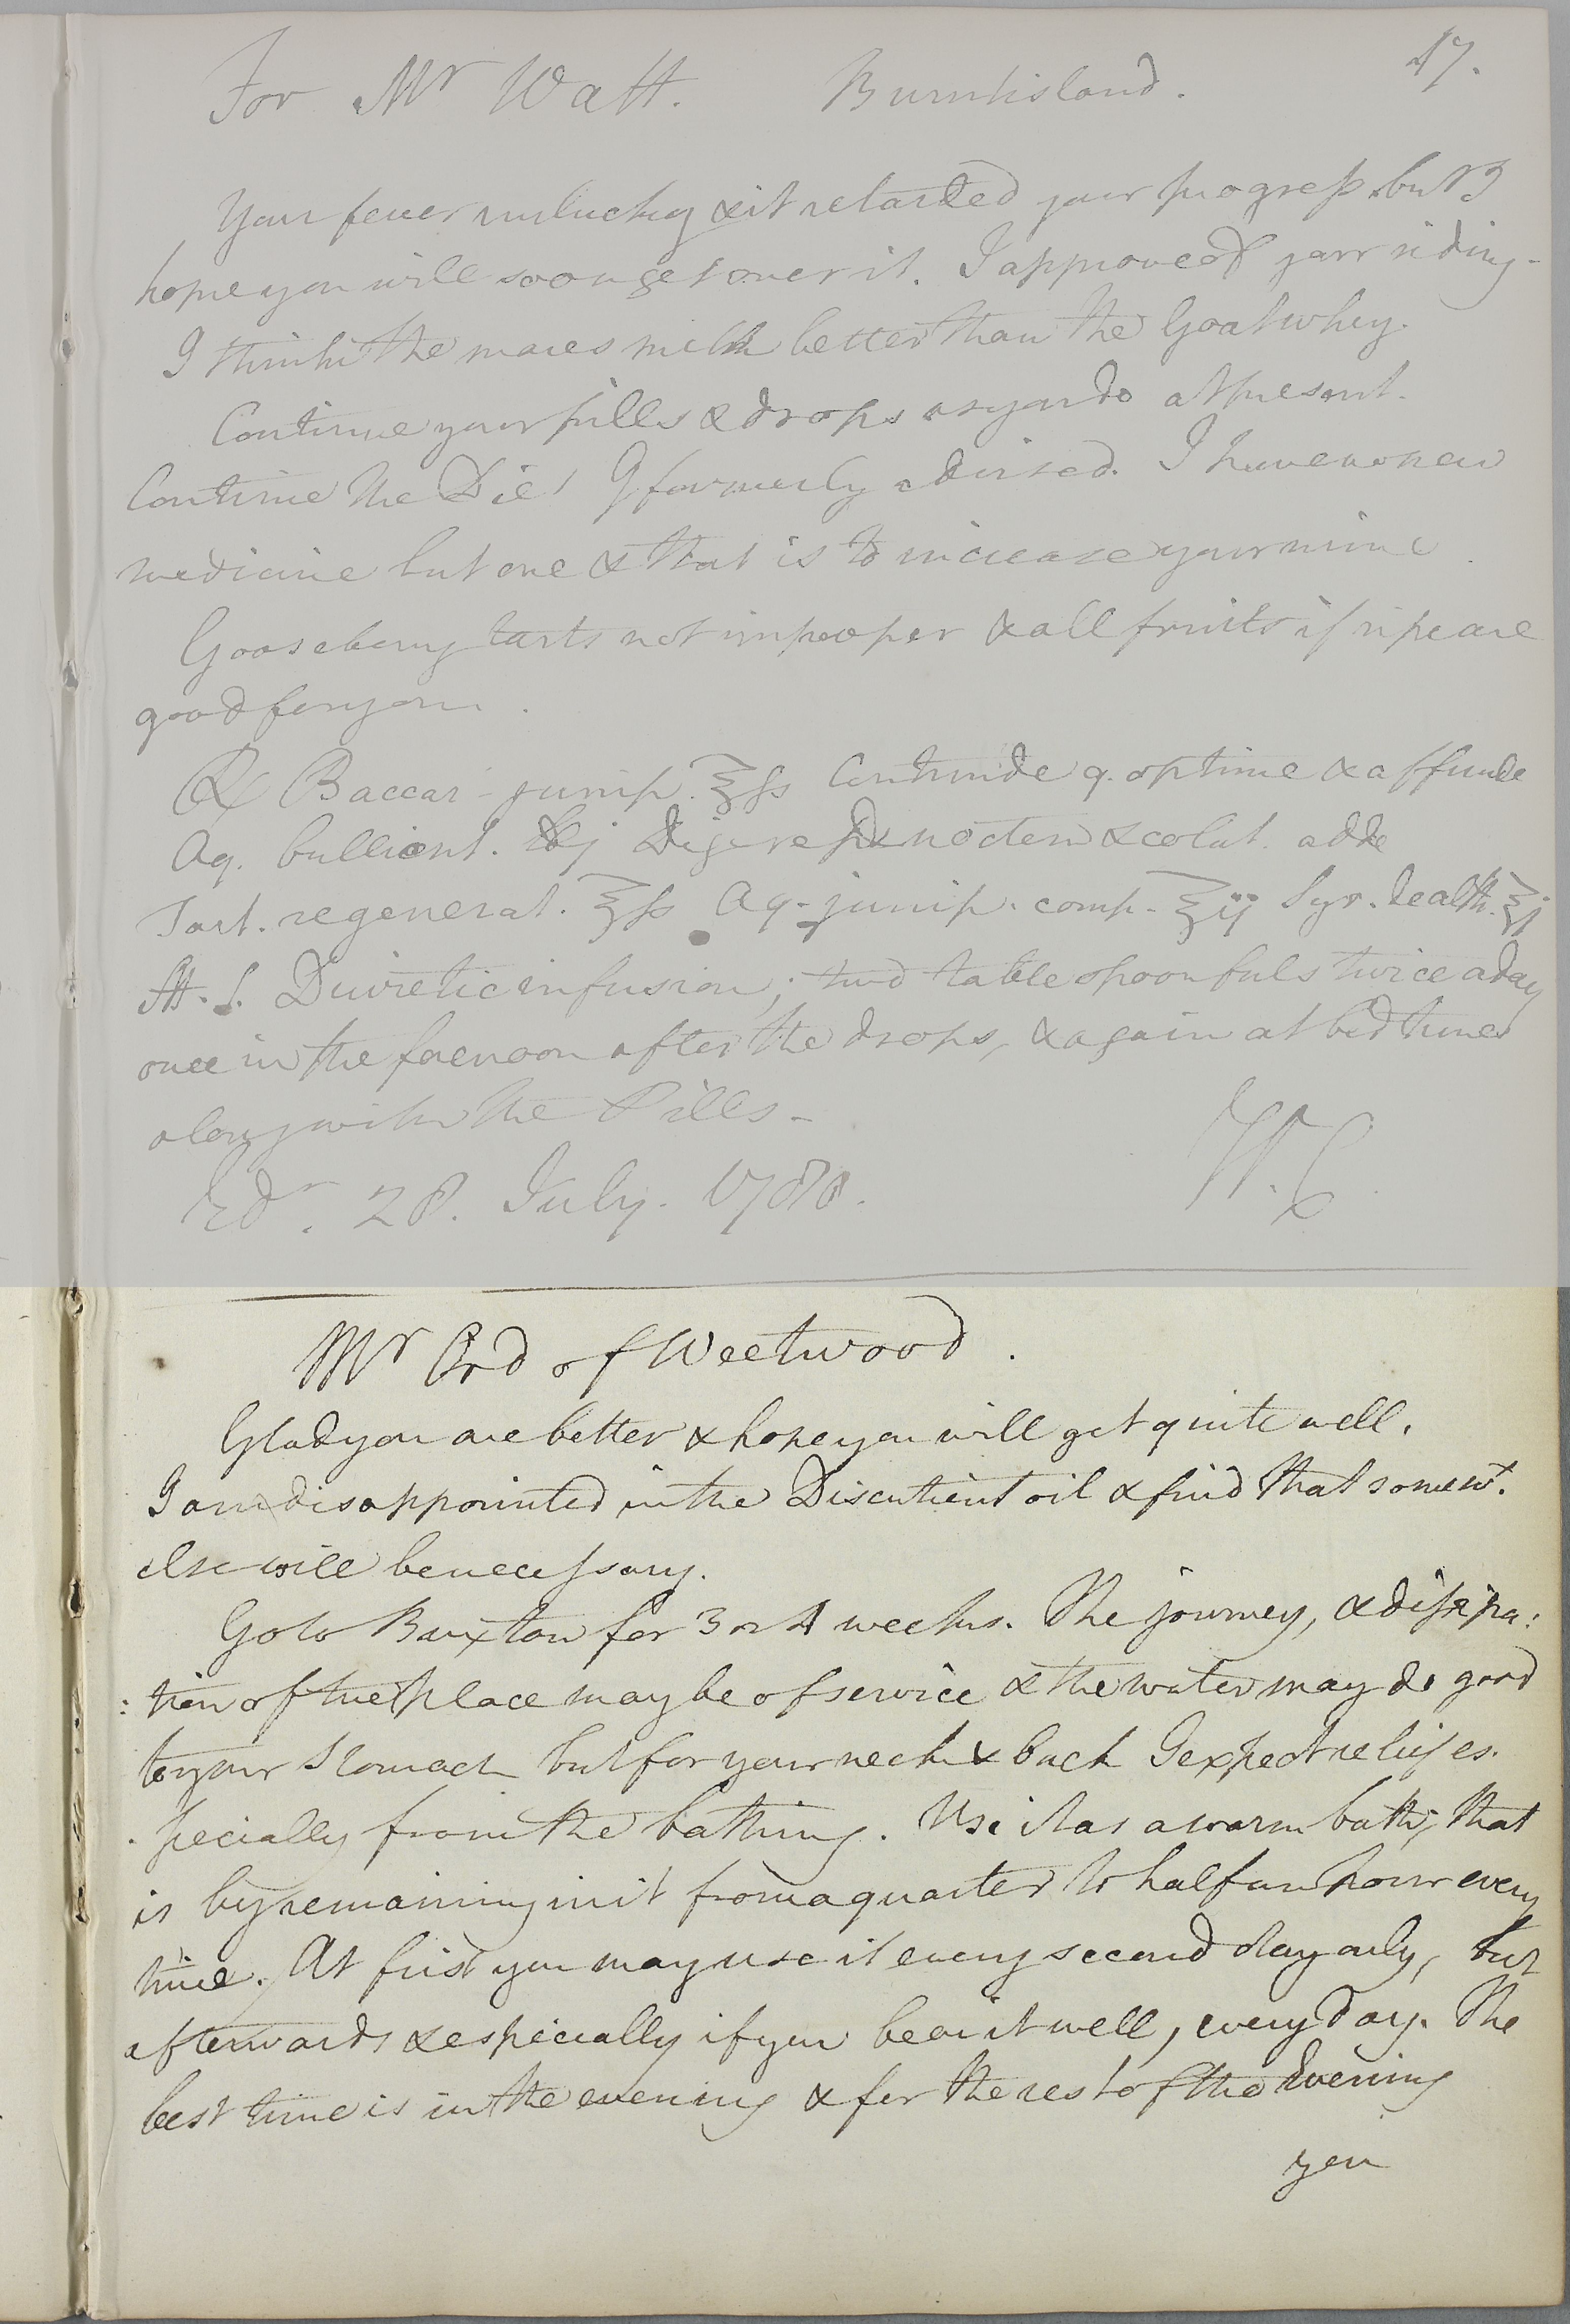 For Mr Watt. Burntisland. 17.
Your fever unlucky & it retarded your progress but I
hope you will soon get over it. I approve of your riding -
I think the mares milk better than the Goat whey.
Continue your pills & drops as you do at present.
Continue the Diet I formerly advised. I have no new
medicine but one & that is to increase your urine
Gooseberry tarts not improper & all fruits if ripe are
good for you.
℞ Baccar. junip. ℥ſs Contunde q. optime & affunde
Aq. bullient. ℔j Digere per noctem & colat. adde
Tart. regenerat. ℥ſs Aq. junip. comp. ℥ij Syr. de alth. ℥j
ft. S. Diuretic infusion; two table spoonfuls twice a day
once in the forenoon after the drops, & again at bed time
along with the Pills -
Edr. 28. July. 1780. W.C.
Mr Ord of Weetwood.
Glad you are better & hope you will get quite well.
I am disappointed in the Discutient oil & find that somewt.
else will be necessary.
Go to Buxton for 3 or 4 weeks. The journey, & dissipa:
:tion of the place may be of service & the water may do good
to your Stomach but for your neck & back I expect relief es.
.pecially from the bathing. Use it as a warm bath, that
is by remaining in it from a quarter to half an hour every
time. At first you may use it every second day only, but
afterwards & especially if you bear it well, every day. The
best time is in the evening & for the rest of the Evening
you